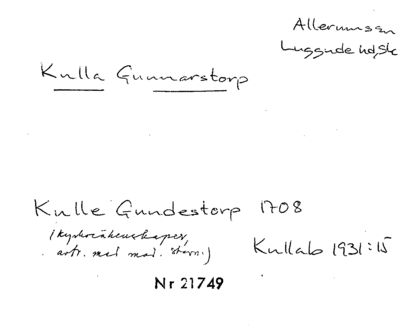 Allerums sn
Luggude hd, Sk
Kulla Gunnarstorp
Kulle Gundestorp 1708
(kyrkoräkenskaper,
avtr. med mod. stavn.)
Kullab 1931:15
Nr 21749